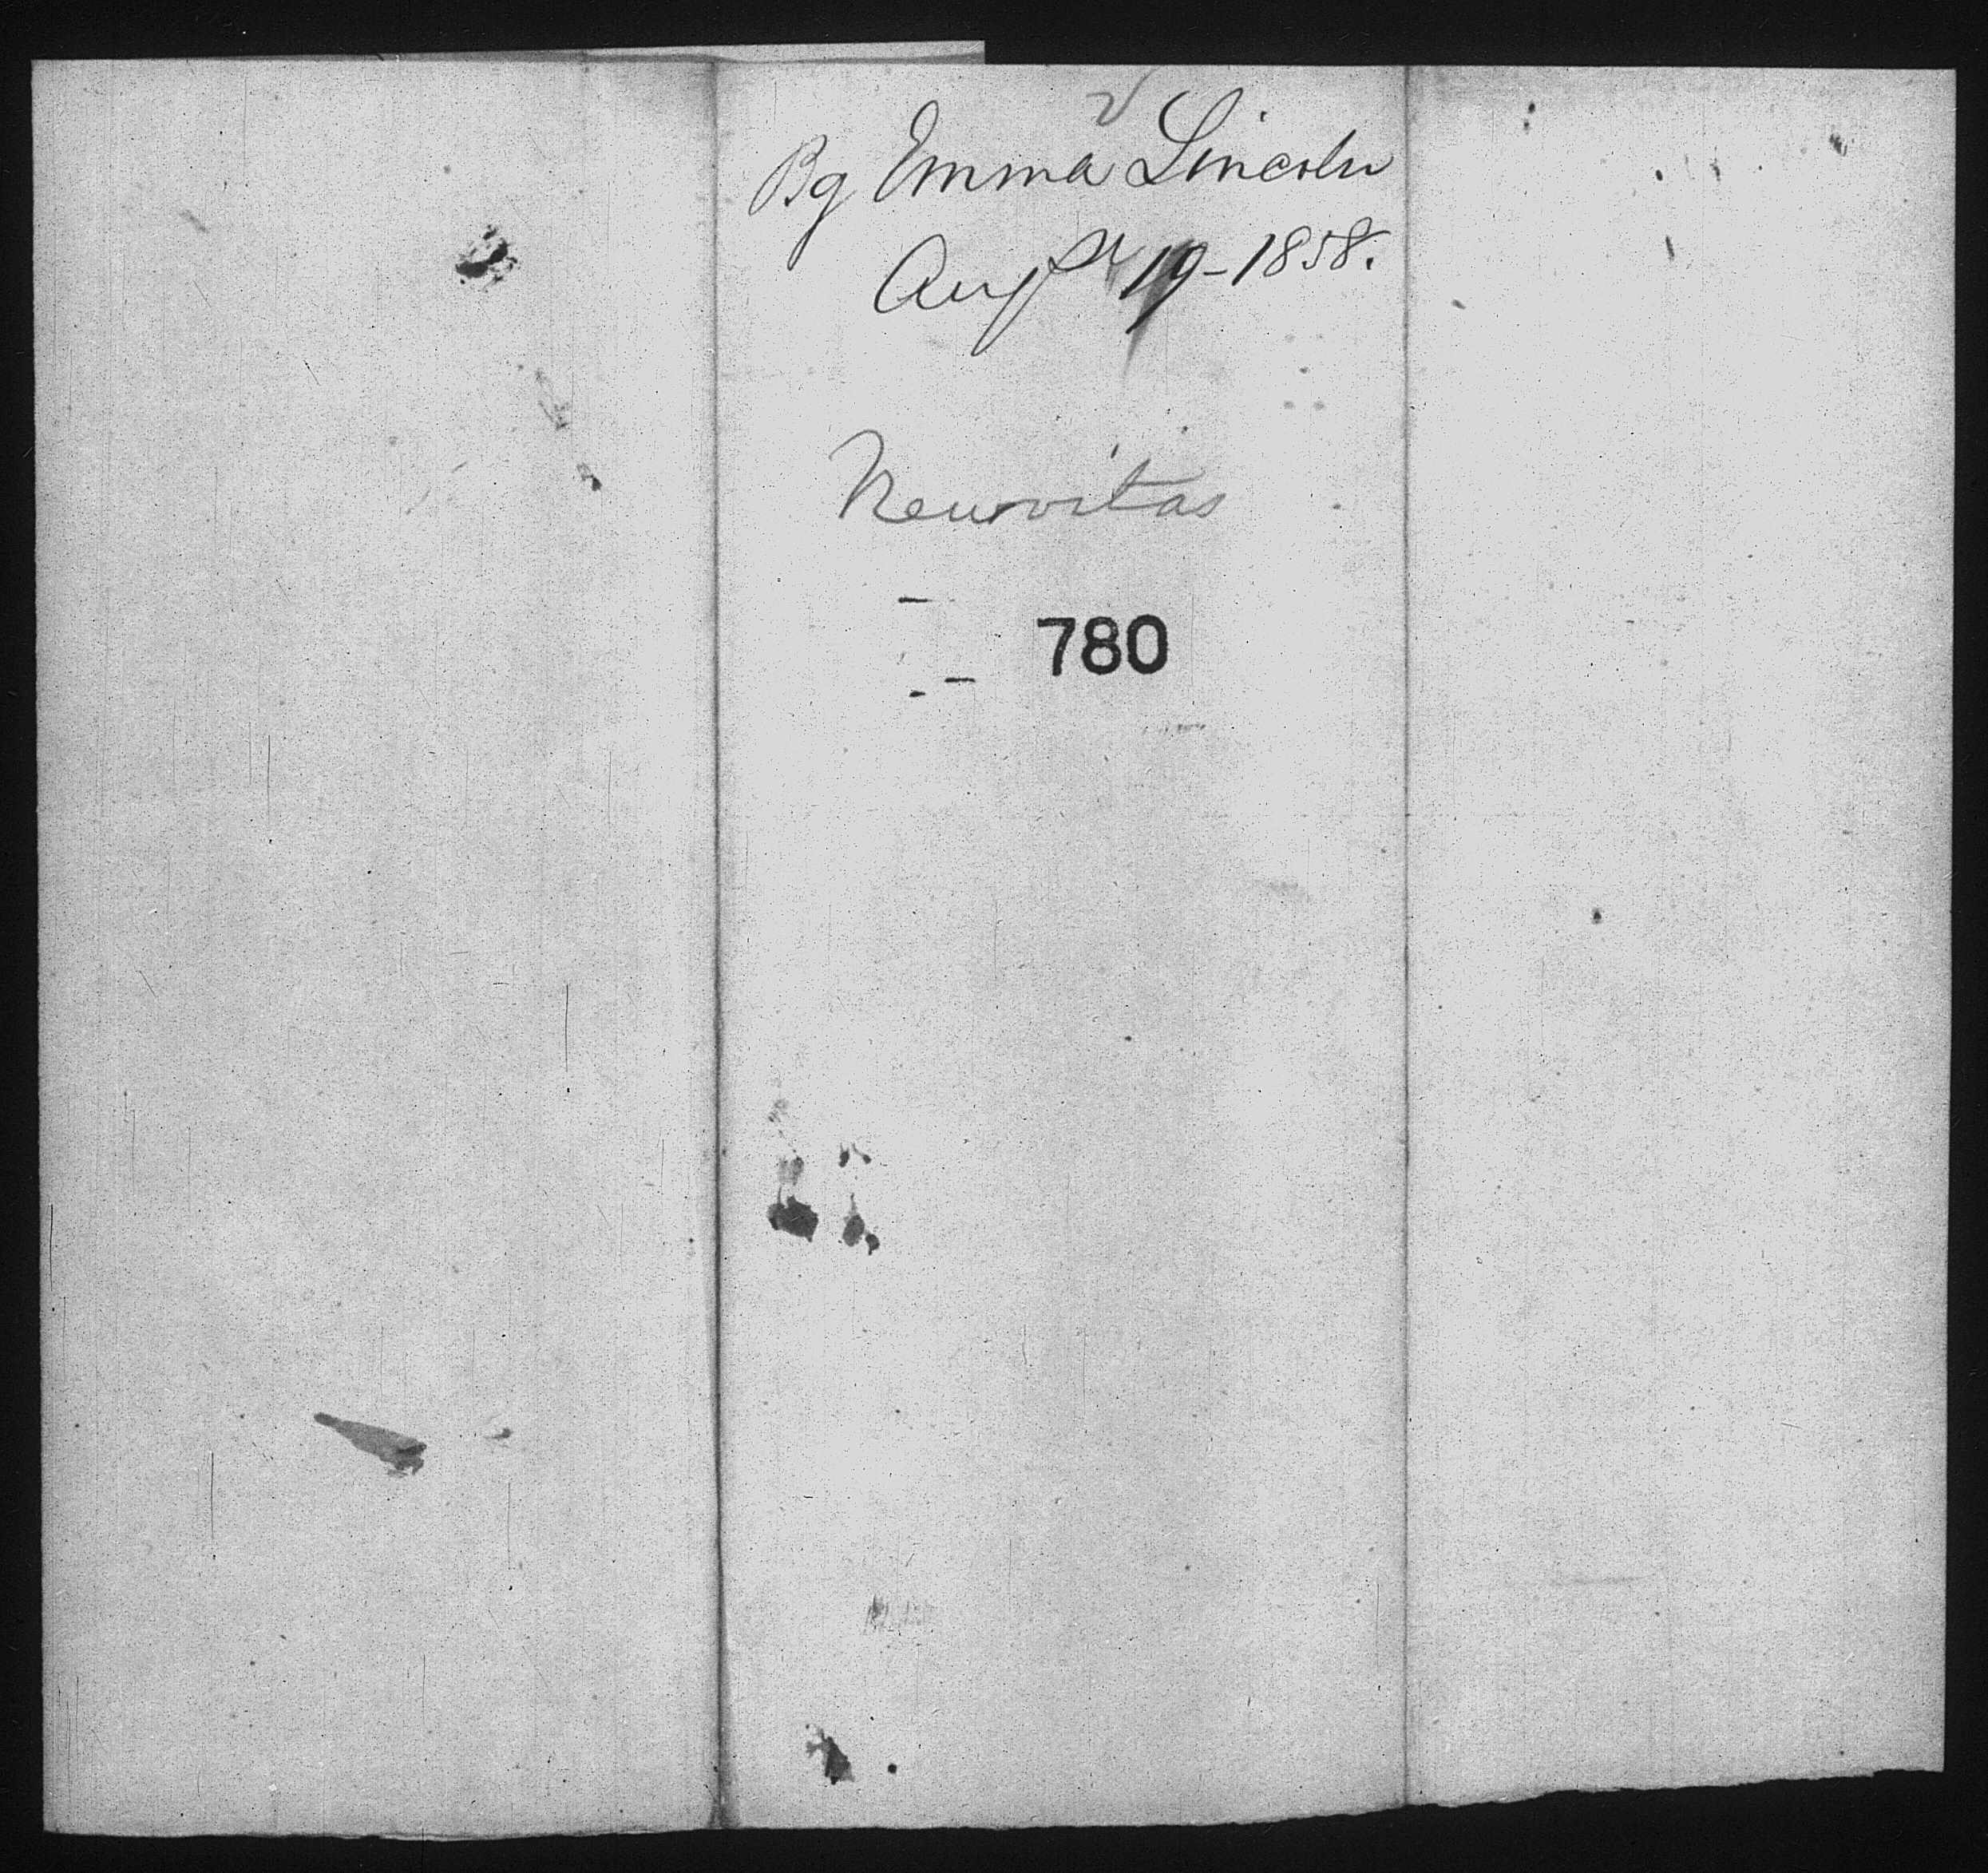 Bg Emma Lincoln
Augst 19-1858.
Neuvitas
780